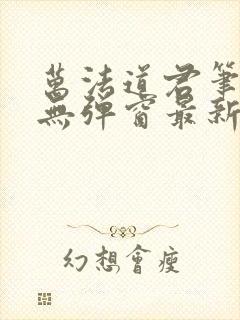 萬法道君筆
無彈窗最新
幻想會瘦